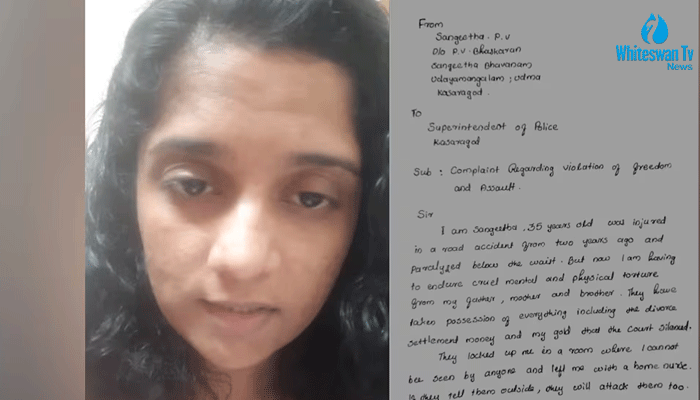 Whiteswan Tv
News
From
Sangeetha . P.V
D/o P.V. Bhaskaran
Sangeetha Bhavanam
Udayamangalam ; Udma
Kasaragod .
To
Superintendent of Police
Kasaragod
Sub : Complaint Regarding violation of freedom
and Assault.
Sir
I am Sangeetha . 35 years old was injured
in a road accident from two years ago and
paralyzed below the waist. But now I am having
to endure cruel mental and physical torture
from my father, mother and brother. They have
taken possession of everything including the divorce
settlement money and my gold that the court
They locked up me in a room where I cannot
be seen by anyone and left me with a home nurse.
If they tell them outside, they will attack them too.